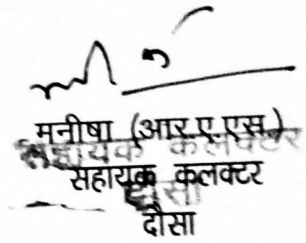 मनीषा (आर.ए.एस.)
सहायक कलक्टर
सहायक कलक्टर
दौसा
दौसा